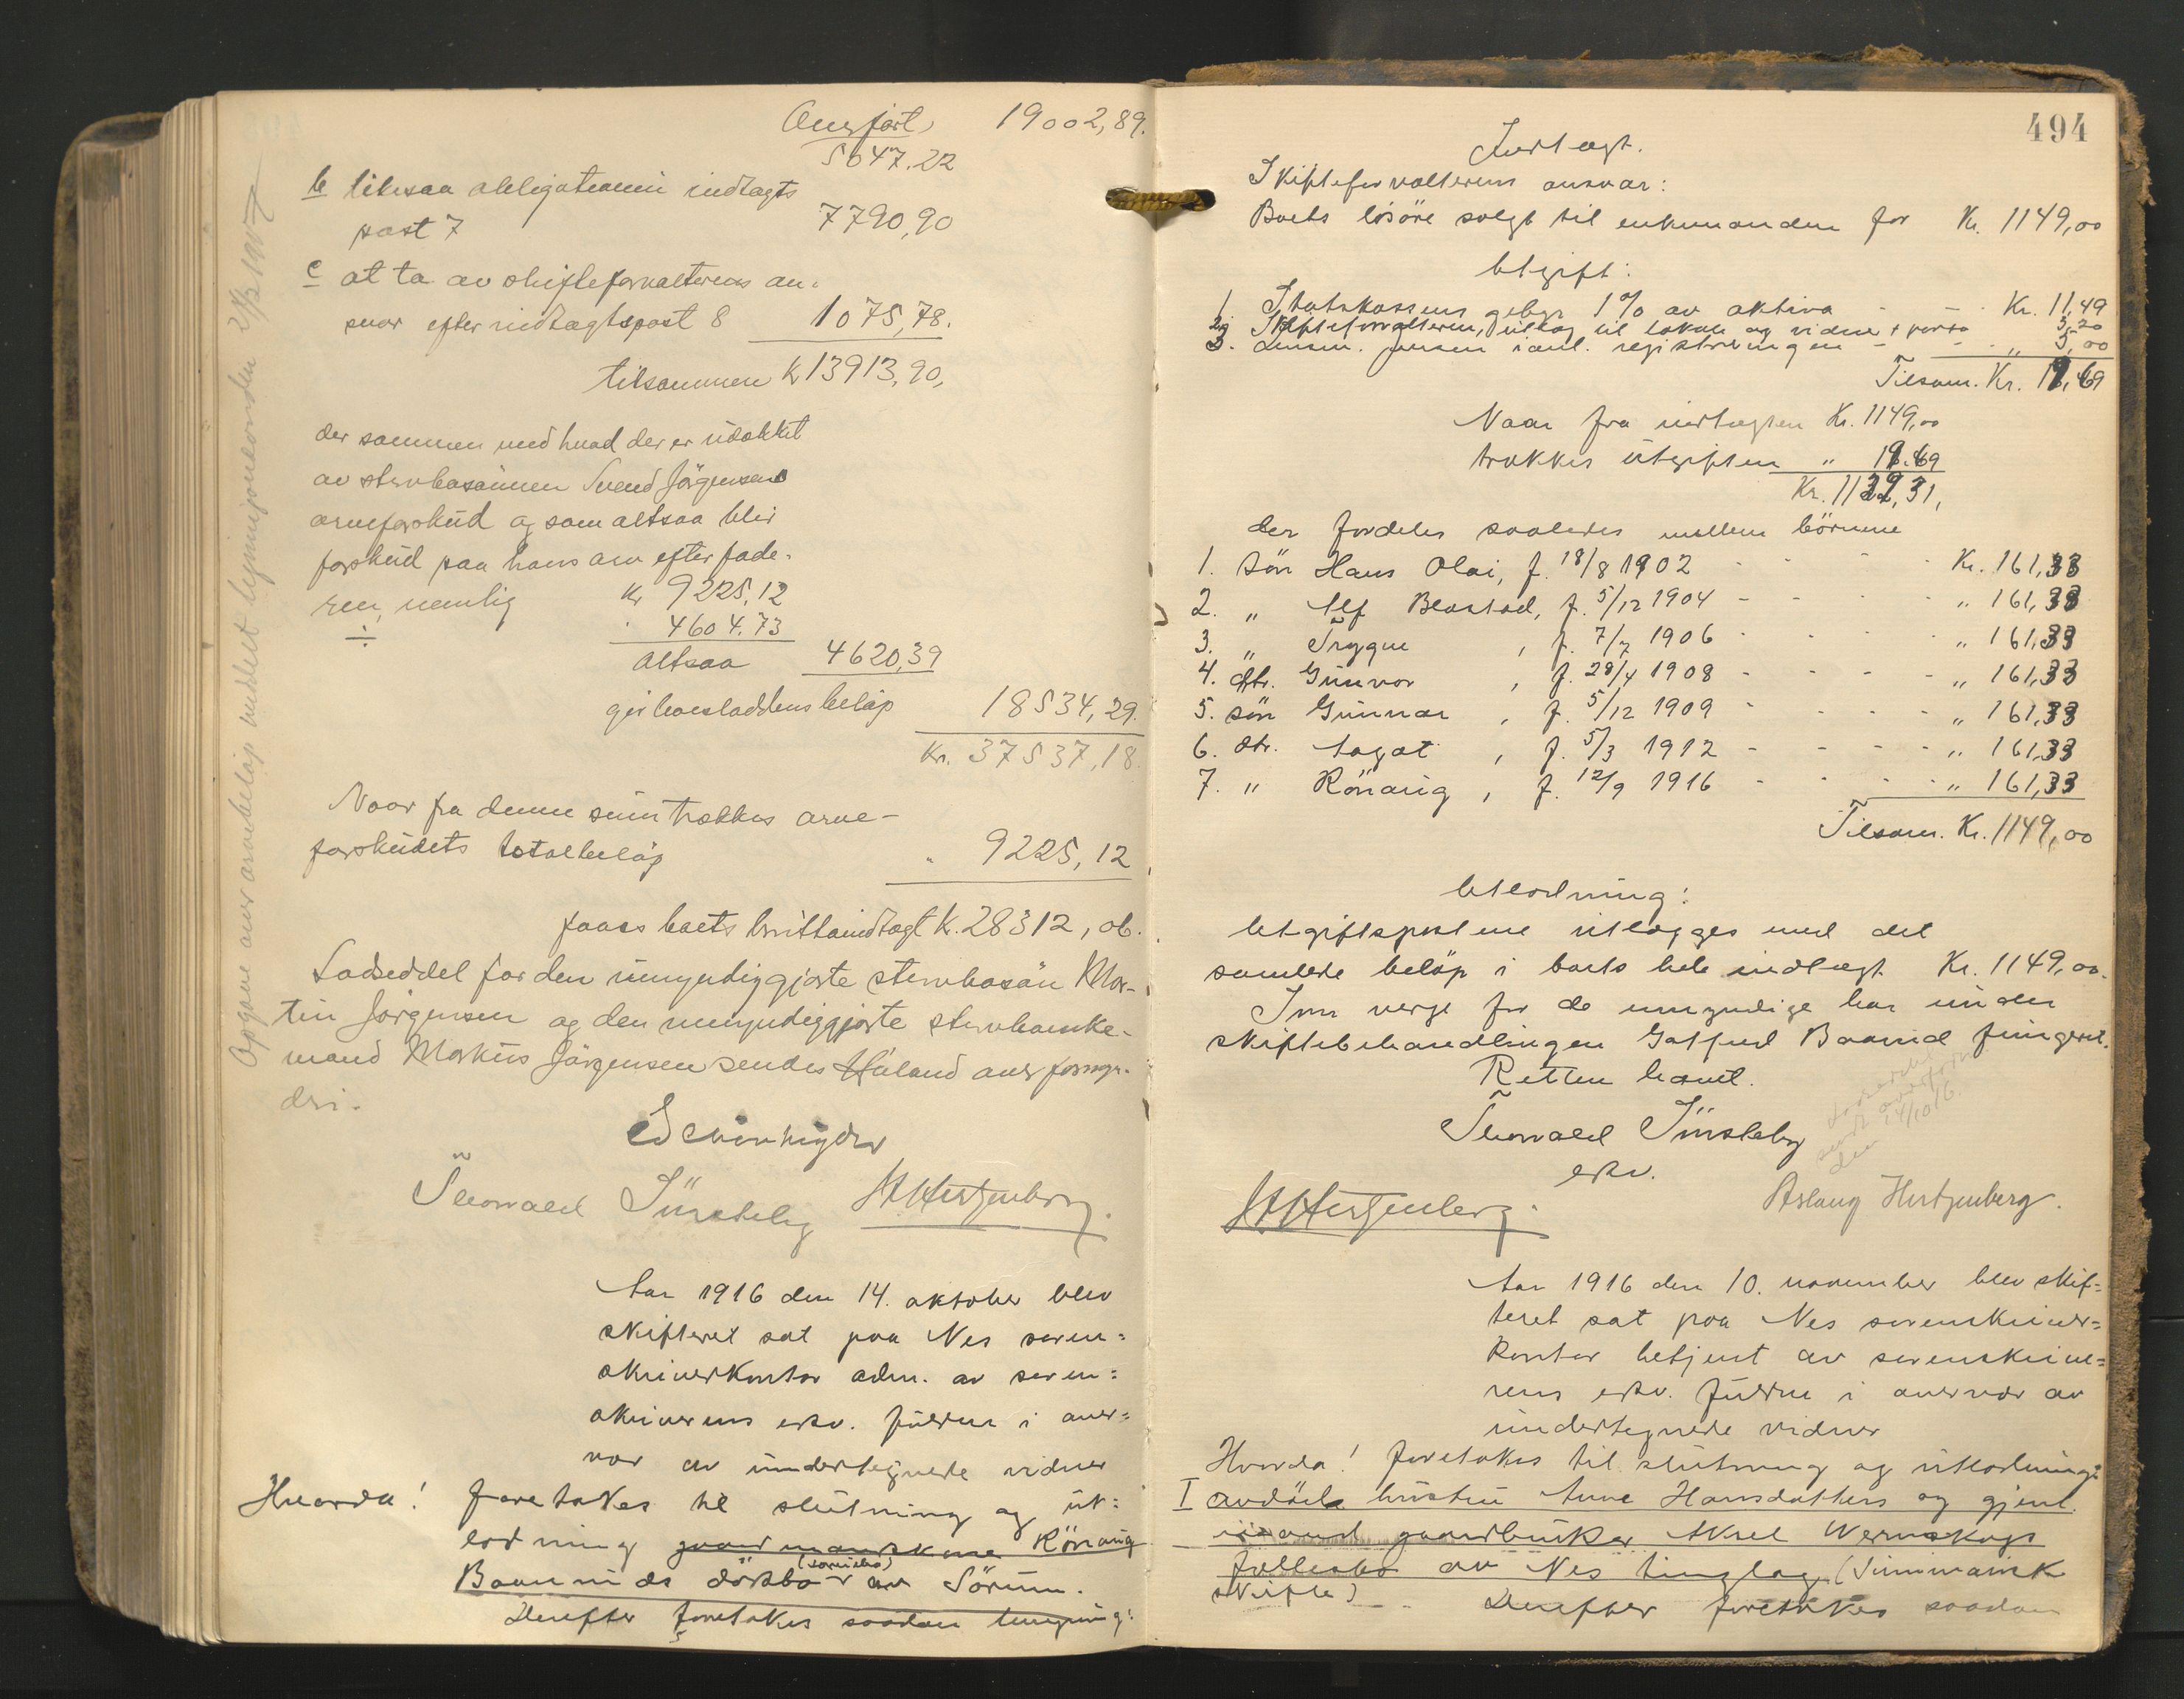 Overført 19002,89.
5047.22
b likesaa obligationen indtagts
post 7 7790,90
c at ta av skifteforvalterens an-
svar efter indtagtspost 8 1075,78.
tilsammen k 13913,90,
der sammen med hvad der er utdækket
av stervbosønnen Svend Jörgensens
arveforskud og som altsaa blir
forskud paa hans arv efter fade-
ren, nemlig Kr 9225,12
÷ 4604.73
altsaa 4620,39
gir hovedloddens beløp 18534,29.
Kr. 37537,18.
Naar fra denne sum trækkes arve-
forskudets totalbeløp " 9225,12
faaes boets bruttoindtægt K. 28312,06.
Lodseddel for den umyndiggjorte stervbosøn Mar-
tin Jörgensen og den umyndiggjorte stervboenke-
mand Markus Jörgensen sendes Høland overformyn-
deri.
Thorvald Sünsteby HHertzenberg.
Opgave over arvebeløp meddelt ligningsnevnden
Aar 1916 den 14. oktober blev
skifteret sat paa Nes soren=
skriverkontor adm. av soren=
skriverens eksv. fuldm i over=
vær av undertegnede vidner
Hvorda! foretokes til slutning og ut=
lodning gaardmandskone Rönaug
Baanruds dödsbo (særskilt) av Sörum.
Derefter foretokes saadan
494
Indtægt.
Skifteforvalterens ansvar:
Boets lösöre solgt til enkemanden for Kr. 1149,00
Utgift:
1. Statskassens gebyr 1% av aktiva - - Kr. 11,49
2. Skifteforvalteren, utlæg til lokale og vidner + porto 3,20
3. Lensm. Jensen i anl. registreringen - - " 5,00
Tilsam. Kr. 19,69
Naar fra indtægten Kr. 1149,00
trækkes utgiften " 19.69
Kr. 1129,31,
der fordeles saaledes mellem börnene
1. Sön Hans Olai, f. 18/8 1902 - - - Kr. 161,33
2. " Alf Blakstad, f. 5/12 1904 - - - " 161,33
3. " Trygve, f. 7/7 1906 - - - " 161,33
4. dtr. Gunvor, f. 28/4 1908 - - - " 161,33
5. sön Gunnar, f. 5/12 1909 - - - " 161,33
6. dtr. Aagot, f. 5/3 1912 - - - " 161,33
7. " Rönaug, f. 12/9 1916 - - - " 161,33
Tilsam. Kr. 1149,00
Utlodning:
Utgiftspostene utlægges med det
samlede beløp i boets hele indtægt Kr. 1149,00.
Som verge for de umyndige har under
skiftebehandlingen Gotfred Baanrud fungeret.
Retten hævet.
Thorvald Sünsteby
eksv.
sendt overform
den 14/10 16.
HHertzenberg. Aslaug Hertzenberg.
Aar 1916 den 10. november blev skif=
teret sat paa Nes sorenskriver=
kontor betjent av sorenskrive=
rens eksv. fuldm i overvær av
undertegnede vidner
Hvorda! foretokes til slutning og utlodning:
I avdöde hustru Anne Hansdatters og gjenl.
mand gaardbruker Aksel Wernskogs
fællesbo av Nes tinglag (Summarisk
skifte) Derefter foretokes saadan